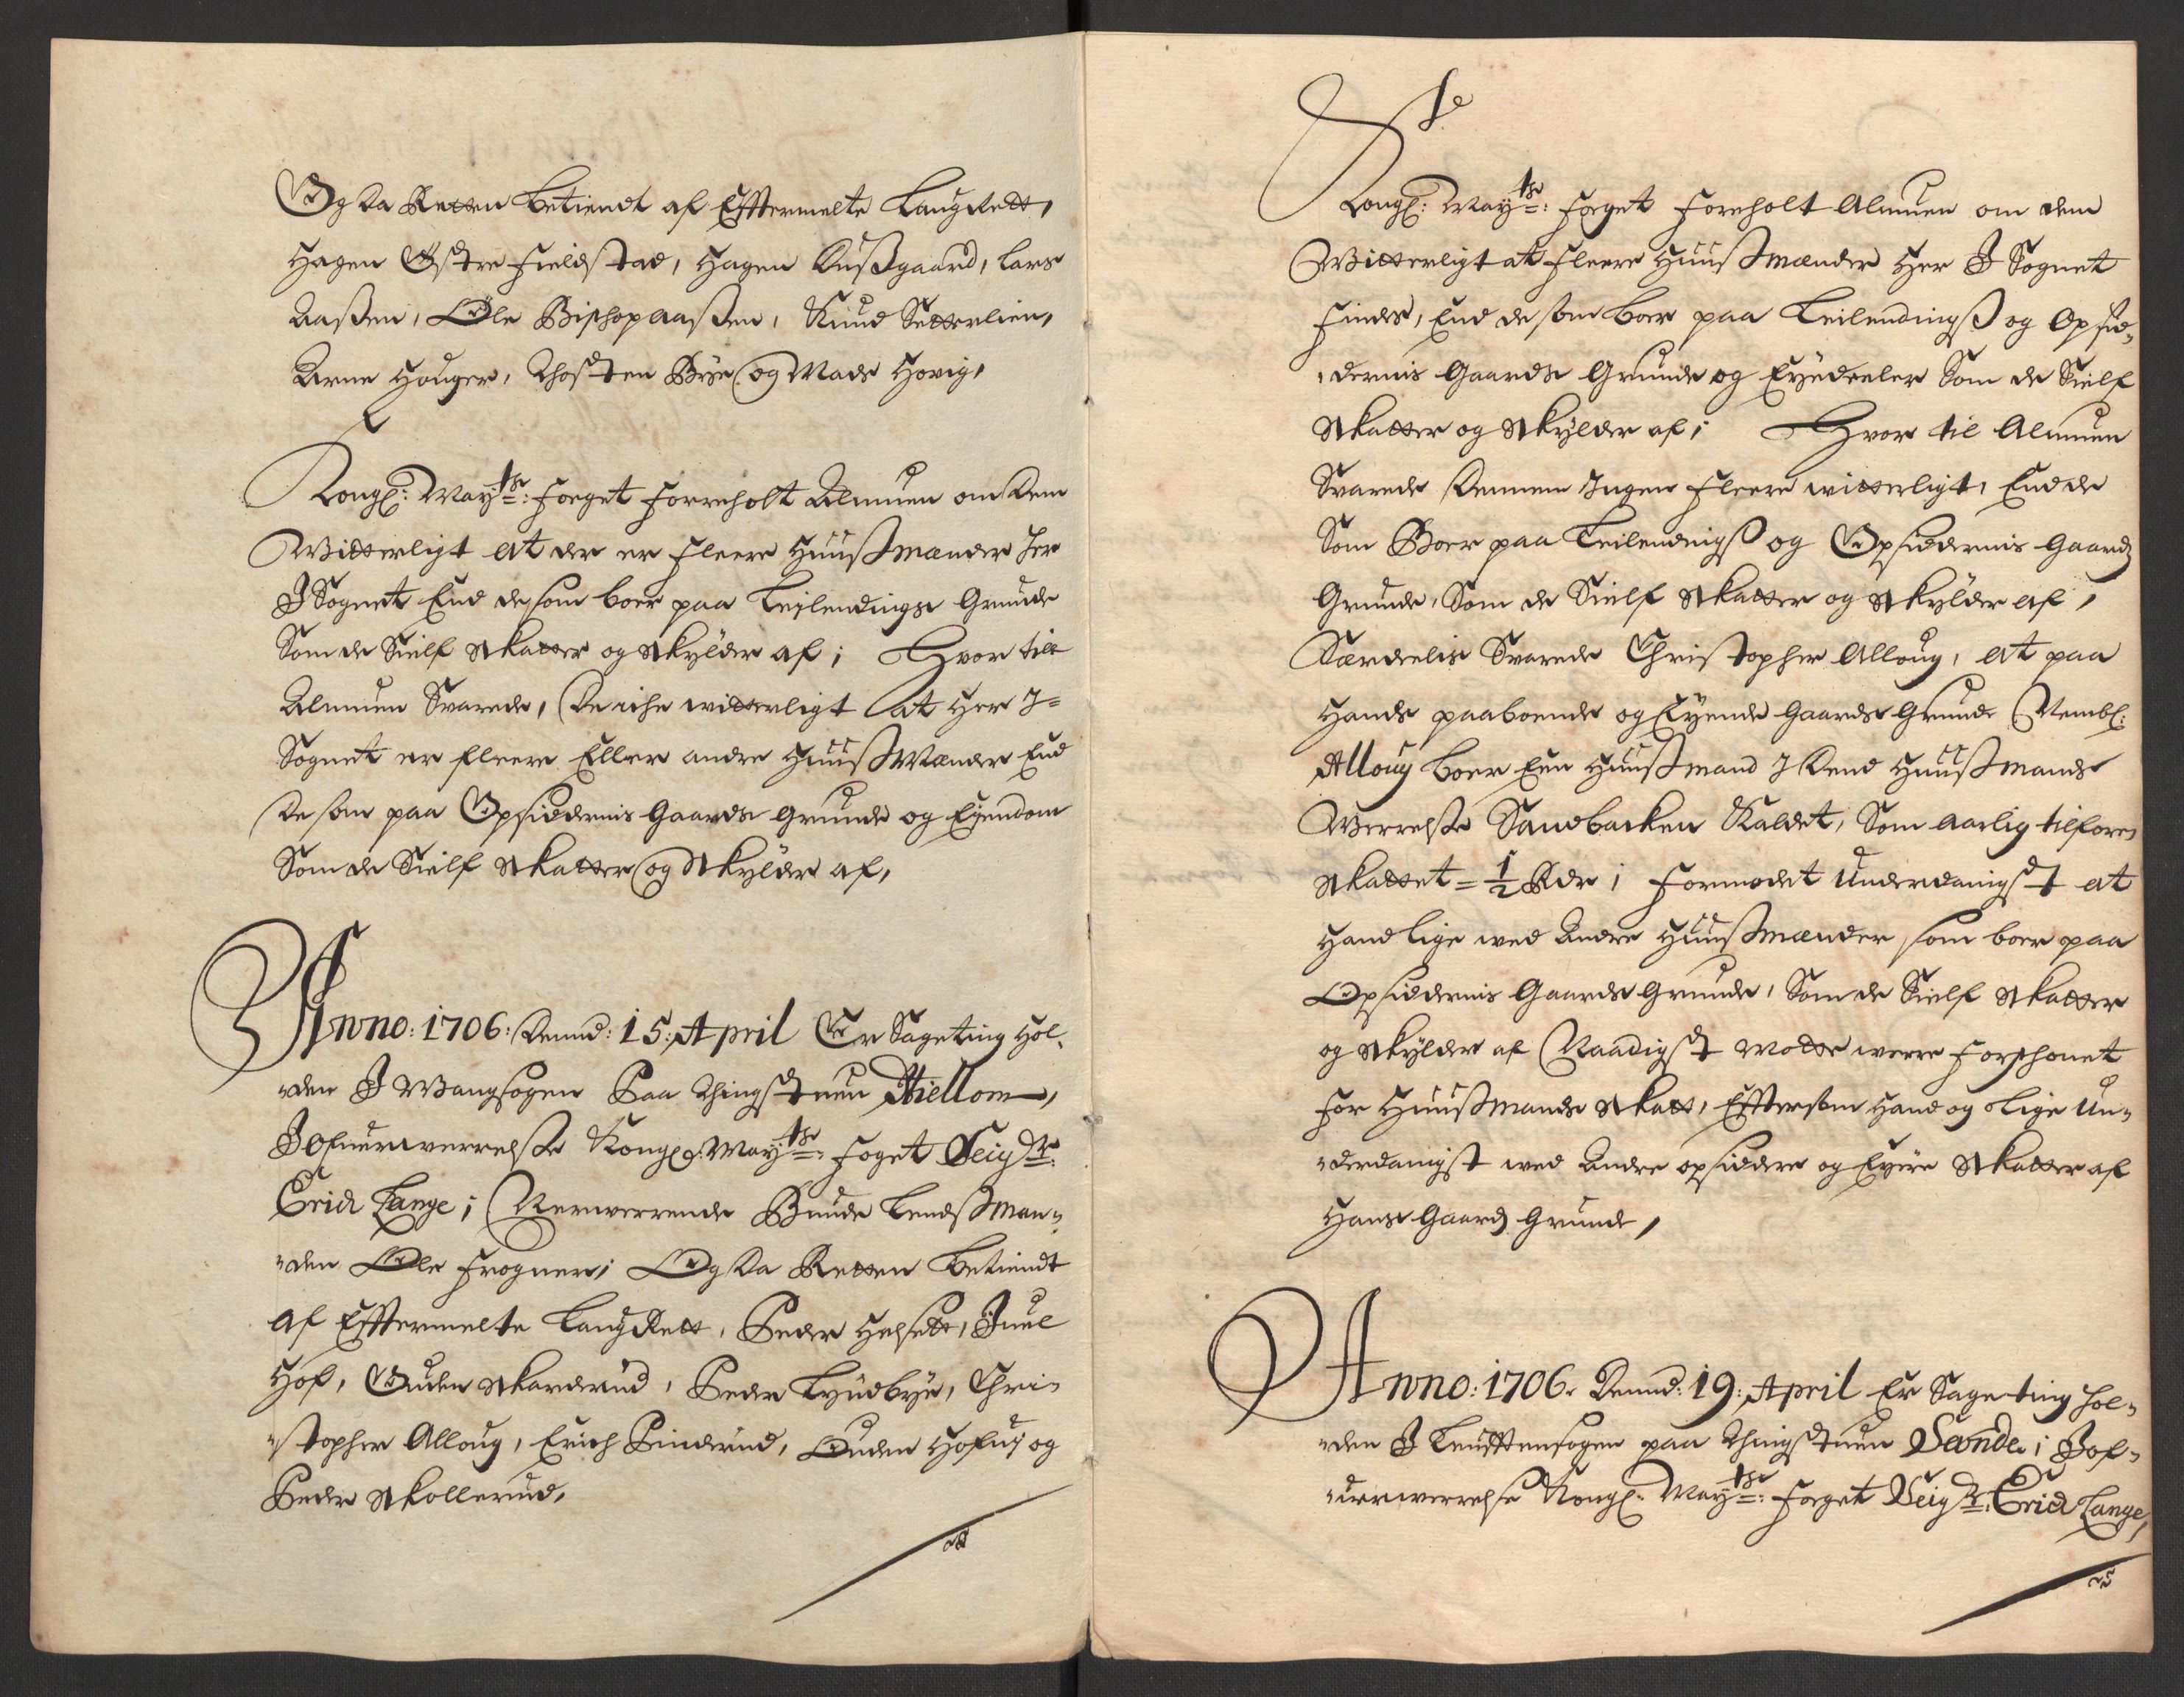 Og da Retten betiendt af Efftermelte Laugrett,
Hagen Østre Fieldstad, Hagen Rußgaard, Lars
Aaßen, Ole Bischopaaßen, Knud Setterlien,
Arne Houger, Thosten Bye og Mads Hovig,
Kongl: May:ts: foeget forreholt Almuen om dem
Witterligt at der er fleere Huußmænder her
J Sognet End de som boer paa Leylendings Grunde
Som de Sielf Skatter og Skylder af; Hvor till
Almuen Svarede, De iche witterligt at her J=
Sognet er fleere Eller andre HuußMænder End
De som paa Opsiddernis Gaards Grunde og Eyendom
Som de Sielf Skatter og Skylder af,
Anno: 1706: Dennd: 15: April Er Sageting Hol¬
den J Wangsogen Paa Thingstuen Hiellom,
J Ofuerwerrelse Kongl: May:ts: foget Seig:r:
Erich Lange; Nerwerrende Bunde Lendsman¬
den Ole Frogner; Og da Retten betiendt
af Efftermelte Laug Rett, Peder Helsett, Juul
Hof, Guden Skarderud, Peder Lyudbye, Chri¬
stopher Alloug, Erich Finderud, Ouden Hofuj og
Peder Skollerud,
Kongl: May:ts: foget foreholt Almuen om dem
Witterligt at fleere Huußmænder Her J Sognet
findes, End de som boer paa Leilendingß og Opsid¬
dernis Gaards Grunde og Eyedeeler Som de Sielf
Skatter og Skylder af; Hvor til Almuen
Svarede dennem Jngen fleere witterligt, End de
Som Boer paa Leilendingß og Opsiddernis Gaards
Grunde, Som de Sielf Skatter og Skylder af,
Særdelis Svarede Christopher Alloug, at paa
Hands paaboende og Eyende Gaards Grunde Nembl:
Alloug boer Een Huußmand J dend Huußmands
Werrelse Sandbacken Kaldet, Som aarlig tilforn
Skattet = 1/2 Rdr; formodet Underdanigst at
Hand lige wed Andre Huußmænder som boer paa
Opsiddernis Gaards Grunde, Som de Sielf Skatter
og Skylder af Naadigst motte werre forschonet
for Huußmands Skatt, Efftersom Hand og lige Un¬
derdanigst wed Andre opsiddere og Eyere Skatter af
Hans Gaards Grunde,
Anno: 1706. Dennd: 19: April Er Sageting hol¬
den J Leufftensogen paa Thingstuen Seonde; J Of¬
uerwerrelse Kongl: May:ts: foget Seig:r: Erich Lange,